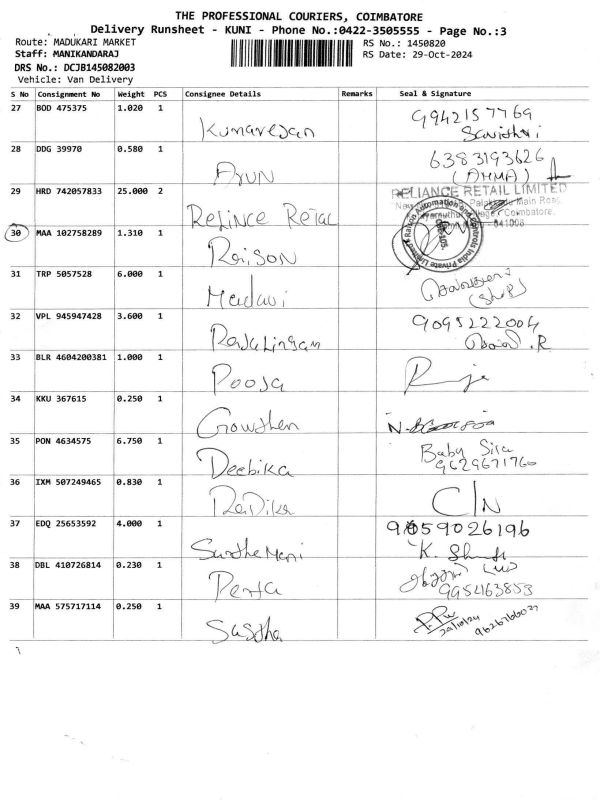 THE PROFESSIONAL COURIERS, COIMBATORE
Delivery Runsheet - KUNI - Phone No.:0422-3505555 - Page No.:3
Route: MADUKARI MARKET
RS No.: 1450820
Staff: MANIKANDARAJ
RS Date: 29-Oct-2024
DRS No.: DCJB145082003
Vehicle: Van Delivery
S No Consignment No Weight PCS Consignee Details Remarks Seal & Signature
27 BOD 475375 1.020 1 Kumaresan 9942157769
28 DDG 39970 0.580 1 Arun 6383193626
(AMMA)
29 HRD 742057833 25.000 2 Relince Retal RELIANCE RETAIL LIMITED
Main Road,
Coimbatore.
641008
30 MAA 102758289 1.310 1 Raison
31 TRP 5057528 6.000 1 Madavi
32 VPL 945947428 3.600 1 Rajalingam 9095222004
33 BLR 4604200381 1.000 1 Pooja
34 KKU 367615 0.250 1 Gowthem
35 PON 4634575 6.750 1 Deebika Baby
9629671760
36 IXM 507249465 0.830 1 Radika C/N
37 EDQ 25653592 4.000 1 9659026196
38 DBL 410726814 0.230 1 9954163853
39 MAA 575717114 0.250 1 Sastha